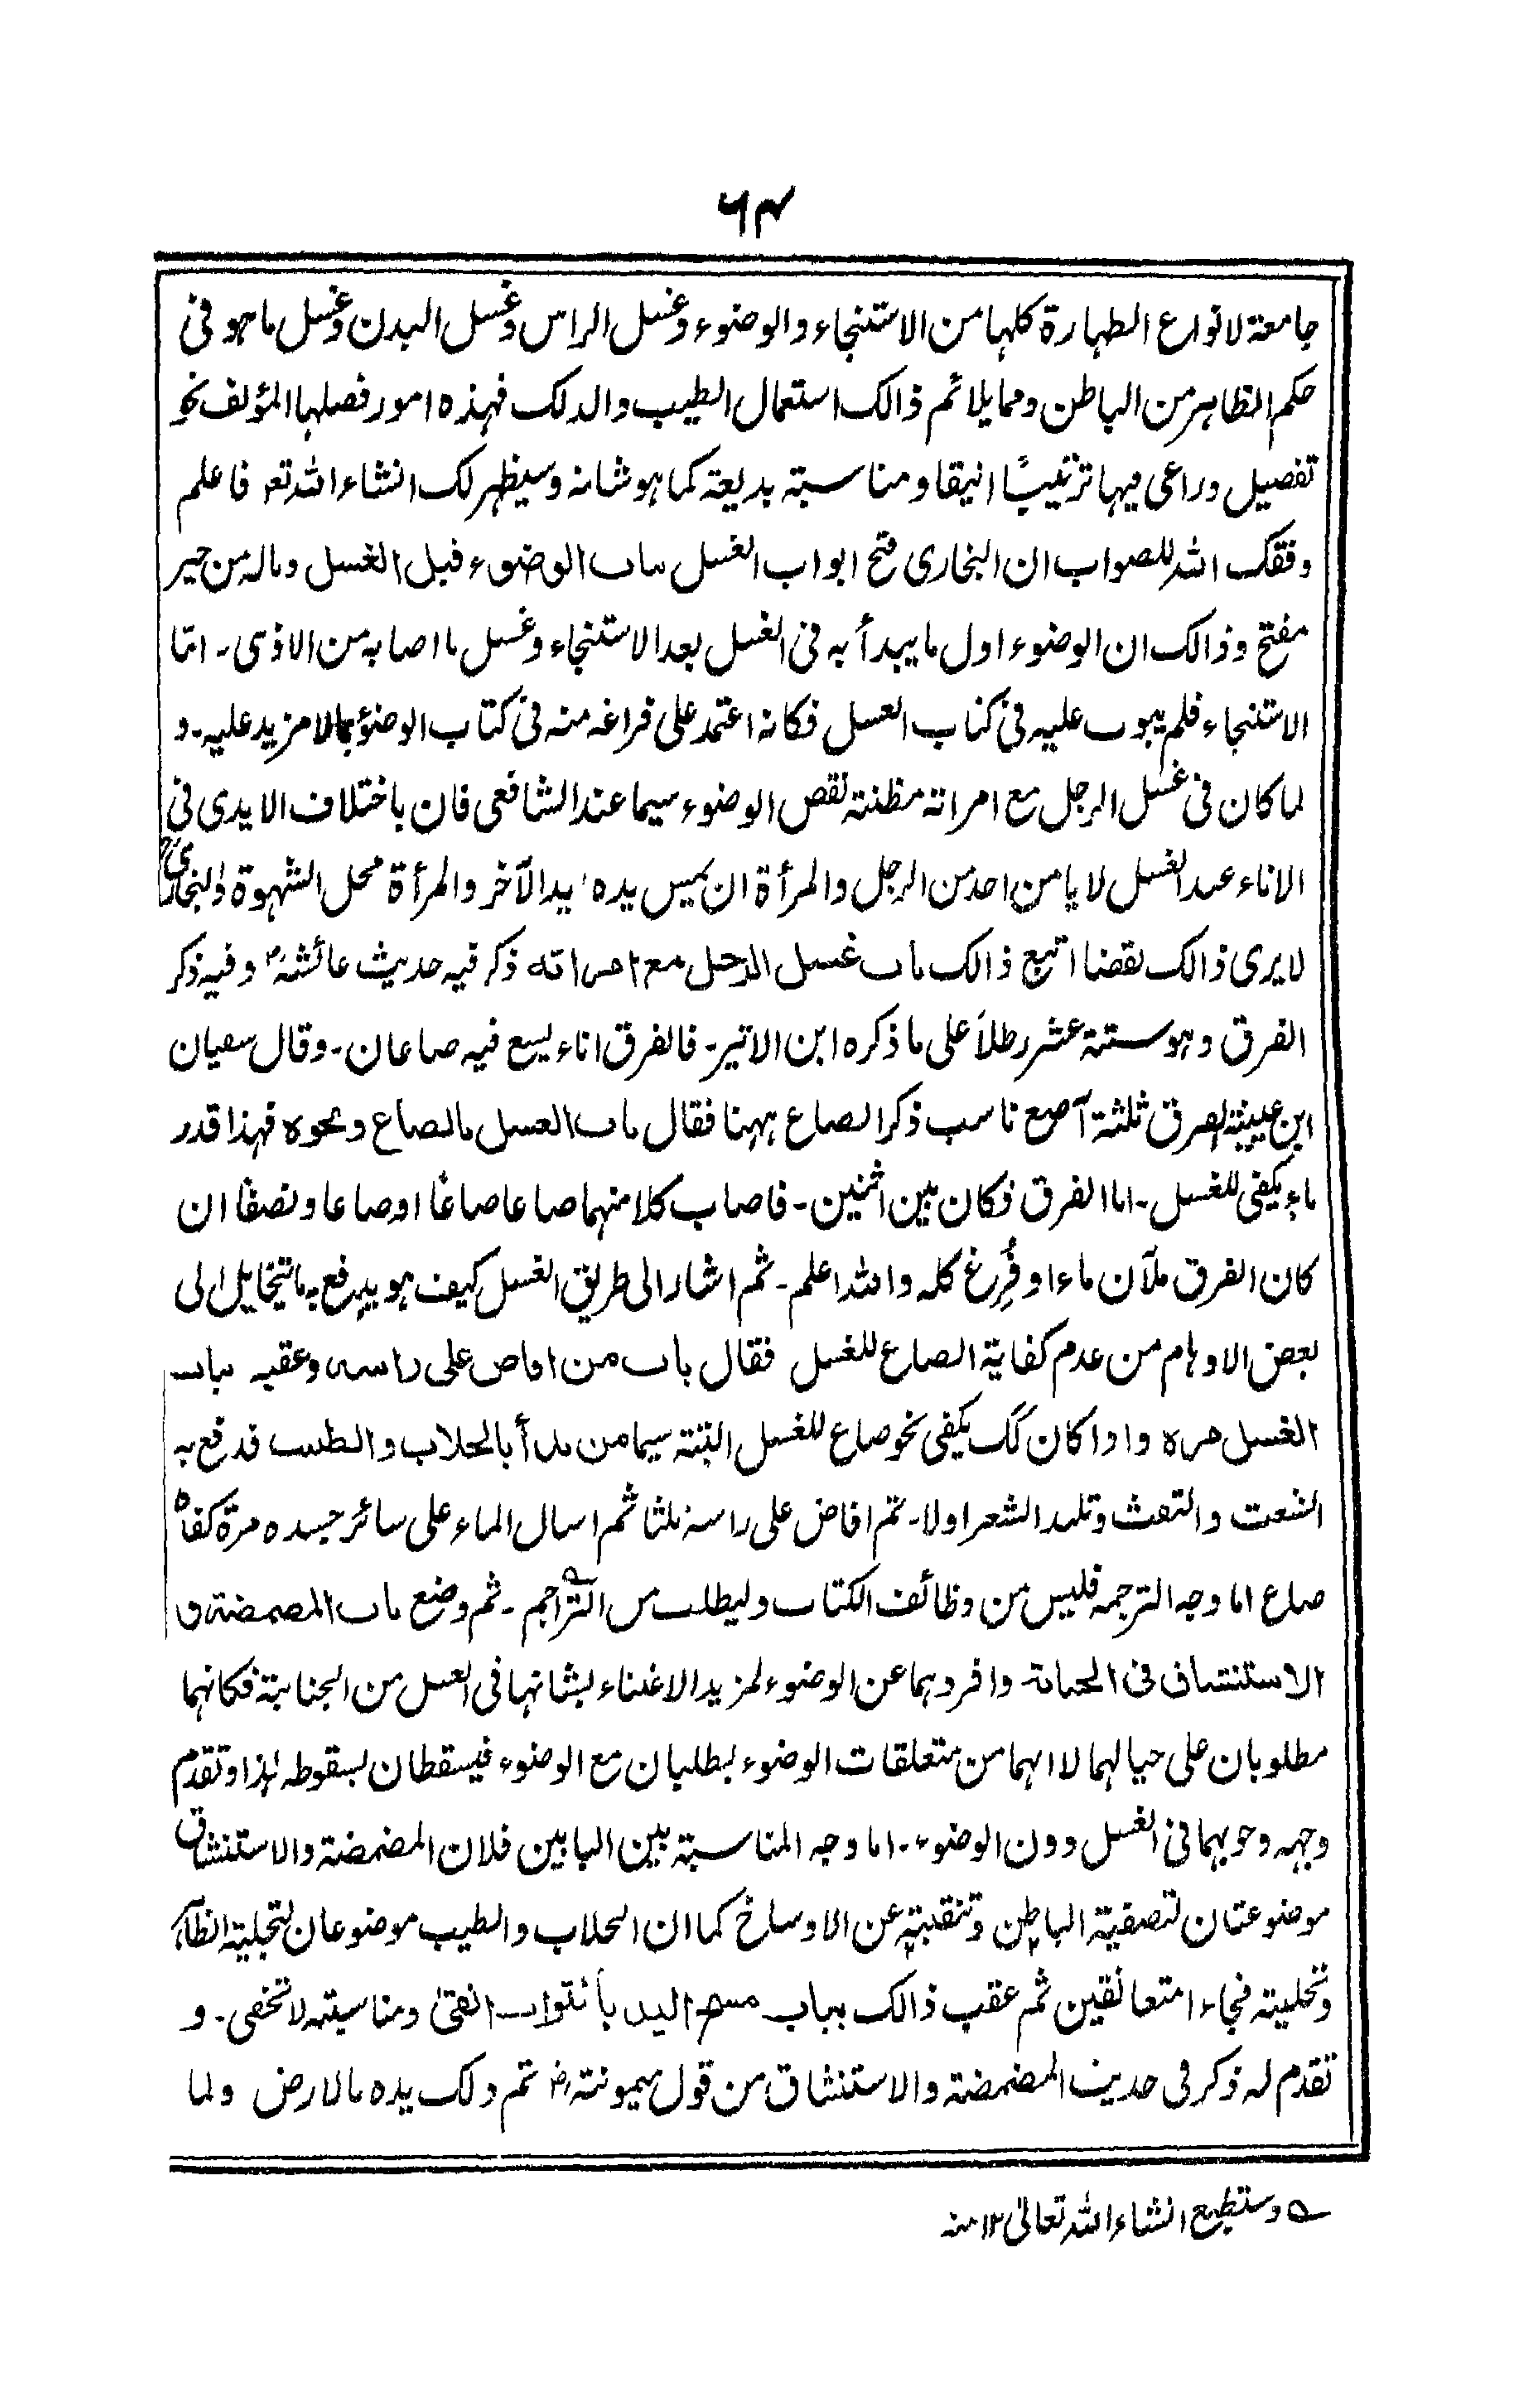 ۶۴
جامعة لانواع الطهارة كلها من الاستنجاء والوضوء وغسل الراس وغُسل البدن وغَسل ما هو فى
حكم الظاهر من الباطن ومما يلائم ذالك استعمال الطيب والدلك فهذه امور فصلها المؤلف نحو
تفصيل وراعى فيها ترتيبًا انيقا ومناسبة بديعة كما هو شانه وسيظهر لك انشاء الله تعـ فاعلم
وفقك الله للصواب ان البخارى فتح ابواب الغسل بباب الوضوء قبل الغسل وماله من خير
مفتح وذالك ان الوضوء اول ما يبدأ به فى الغسل بعد الاستنجاء وغسل ما اصابه من الاذى۔ امّا
الاستنجاء فلم يبوب عليه فى كتاب الغسل فكانه اعتمد على فراغه منه فى كتاب الوضوٴ بمالا مزيد عليه۔ و
لما كان فى غسل الرجل مع امراته مظنة نقص الوضوء سيما عند الشافعى فان باختلاف الايدى فى
الاناء عند الغسل لا يا من احد من الرجل والمرأة ان يميس يده يد الآخر والمرأة محل الشهوة والبخارىؒ
لا يرى ذالك نقضا اتبع ذالك باب غسل الرجل مع امراته ذكر فيه حديث عائشةؓ وفيه ذكر
الفرق وهو ستة عشر رطلاً على ما ذكره ابن الاثير۔ فالفرق اناء يسع فيه صاعان۔ وقال سفيان
ابن عيينة الفرق ثلثة آصع ناسب ذكر الصاع ههنا فقال باب الغسل بالصاع ونحوه فهذا قدر
ماء يكفى للغسل۔ اما الفرق فكان بين اثنين۔ فاصاب كلا منهما صاعا صاعًا اوصاعا ونصفًا ان
كان الفرق ملآن ماءا وفُرِغ كله والله اعلم۔ ثم اشار الى طريق الغسل كيف هو يدفع به ما يتخايل الى
بعض الاوهام من عدم كفاية الصاع للغسل فقال باب من افاض على راسه وعقبه بباب
الغسل مرة واذا كان كك يكفى نحو صاع للغسل البتة سيما من بدأ بالحلاب والطيب قد فع به
الشعت والتفث وتلبد الشعر اولا۔ ثم افاض على راسه ثلثا ثم اسال الماء على سائر جسده مرة كفاه
صاع اما وجه الترجمة فليس من وظائف الكتاب وليطلب من التراجم۔ ثم وضع باب المضمضة و
الاستنشاق فى الجنابة وافردهما عن الوضوء لمزيد الاغتناء بشانهما فى الغسل من الجنابة فكانهما
مطلوبان على حيالهما لا انهما من متعلقات الوضوء يطلبان مع الوضوء فيسقطان بسقوطه لهذا وتقدم
وجهه وجوبهما فى الغسل دون الوضوء۔ اما وجه المناسبة بين البابين فلان المضمضة والاستنشاق
موضوعتان لتصفية الباطن وتنقيته عن الاوساخ كما ان الحلاب والطيب موضوعان لتجلية الظاهر
وتحليته فجاءا متعانقين ثم عقب ذالك بباب مسح اليد بالتراب انقى ومناسبته لا تخفى۔ و
تقدم له ذكر فى حديث المضمضة والاستنشاق من قول ميمونةؓ ثم دلك يده بالارض ولما
ے وستطبع انشاء الله تعالىٰ ۱۲ منه